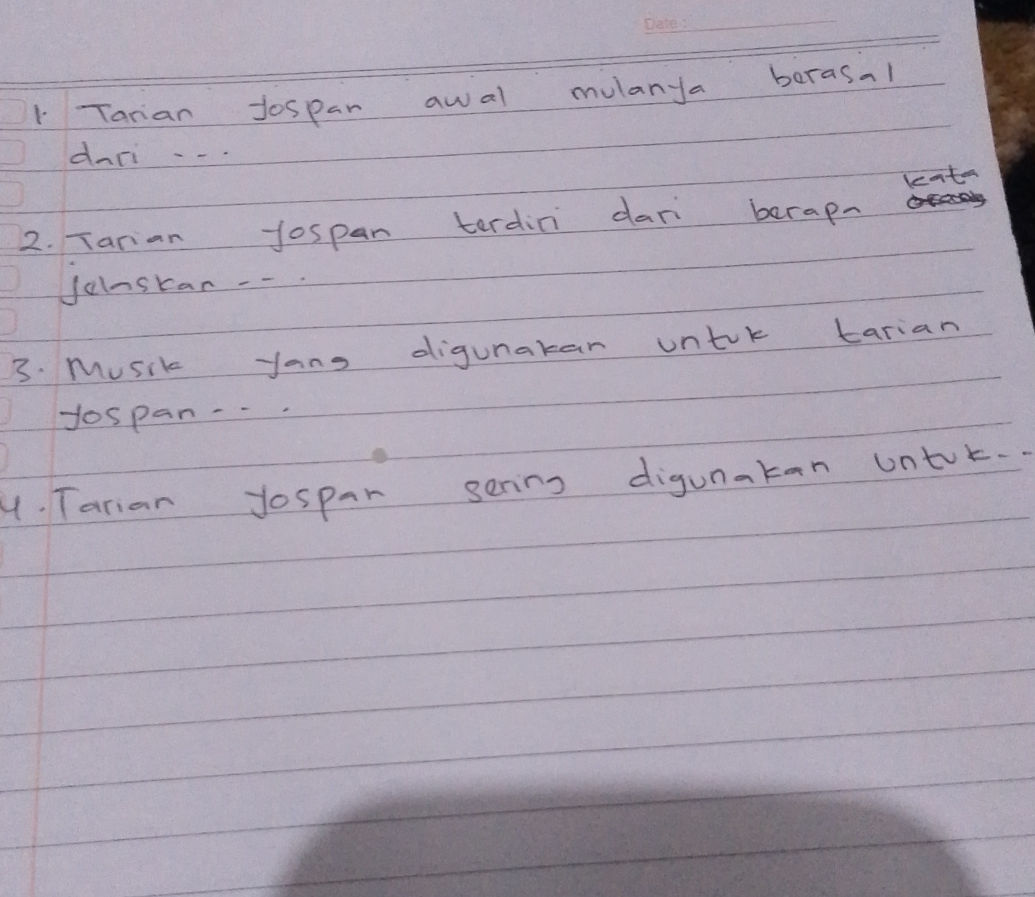 Date :
1. Tarian Yospan awal mulanya berasal
dari ...
kata
2. Tarian Yospan terdiri dari berapa
jelaskan ...
3. Musik yang digunakan untuk tarian
Yospan ...
4. Tarian Yospan sering digunakan untuk...